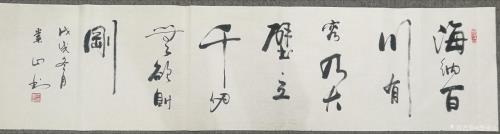 海纳百
川有
容乃大
壁立
千仞
无欲则
刚
戊戌冬月